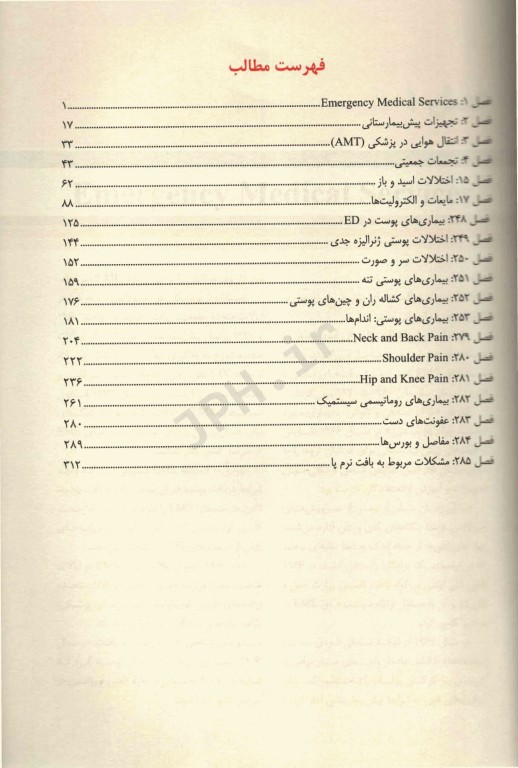 فهرست مطالب
فصل ۱: Emergency Medical Services ........ ۱
فصل ۲: تجهیزات پیش‌بیمارستانی ........ ۱۷
فصل ۳: انتقال هوایی در پزشکی (AMT) ........ ۳۳
فصل ۴: تجمعات جمعیتی ........ ۴۳
فصل ۱۵: اختلالات اسید و باز ........ ۶۲
فصل ۱۷: مایعات و الکترولیت‌ها ........ ۸۸
فصل ۲۴۸: بیماری‌های پوست در ED ........ ۱۲۵
فصل ۲۴۹: اختلالات پوستی ژنرالیزه جدی ........ ۱۴۴
فصل ۲۵۰: اختلالات سر و صورت ........ ۱۵۲
فصل ۲۵۱: بیماری‌های پوستی تنه ........ ۱۵۹
فصل ۲۵۲: بیماری‌های کشاله ران و چین‌های پوستی ........ ۱۷۶
فصل ۲۵۳: بیماری‌های پوستی: اندام‌ها ........ ۱۸۱
فصل ۲۷۹: Neck and Back Pain ........ ۲۰۴
فصل ۲۸۰: Shoulder Pain ........ ۲۲۲
فصل ۲۸۱: Hip and Knee Pain ........ ۲۳۶
فصل ۲۸۲: بیماری‌های روماتیسمی سیستمیک ........ ۲۶۱
فصل ۲۸۳: عفونت‌های دست ........ ۲۸۰
فصل ۲۸۴: مفاصل و بورس‌ها ........ ۲۸۹
فصل ۲۸۵: مشکلات مربوط به بافت نرم پا ........ ۳۱۲
JPH.ir